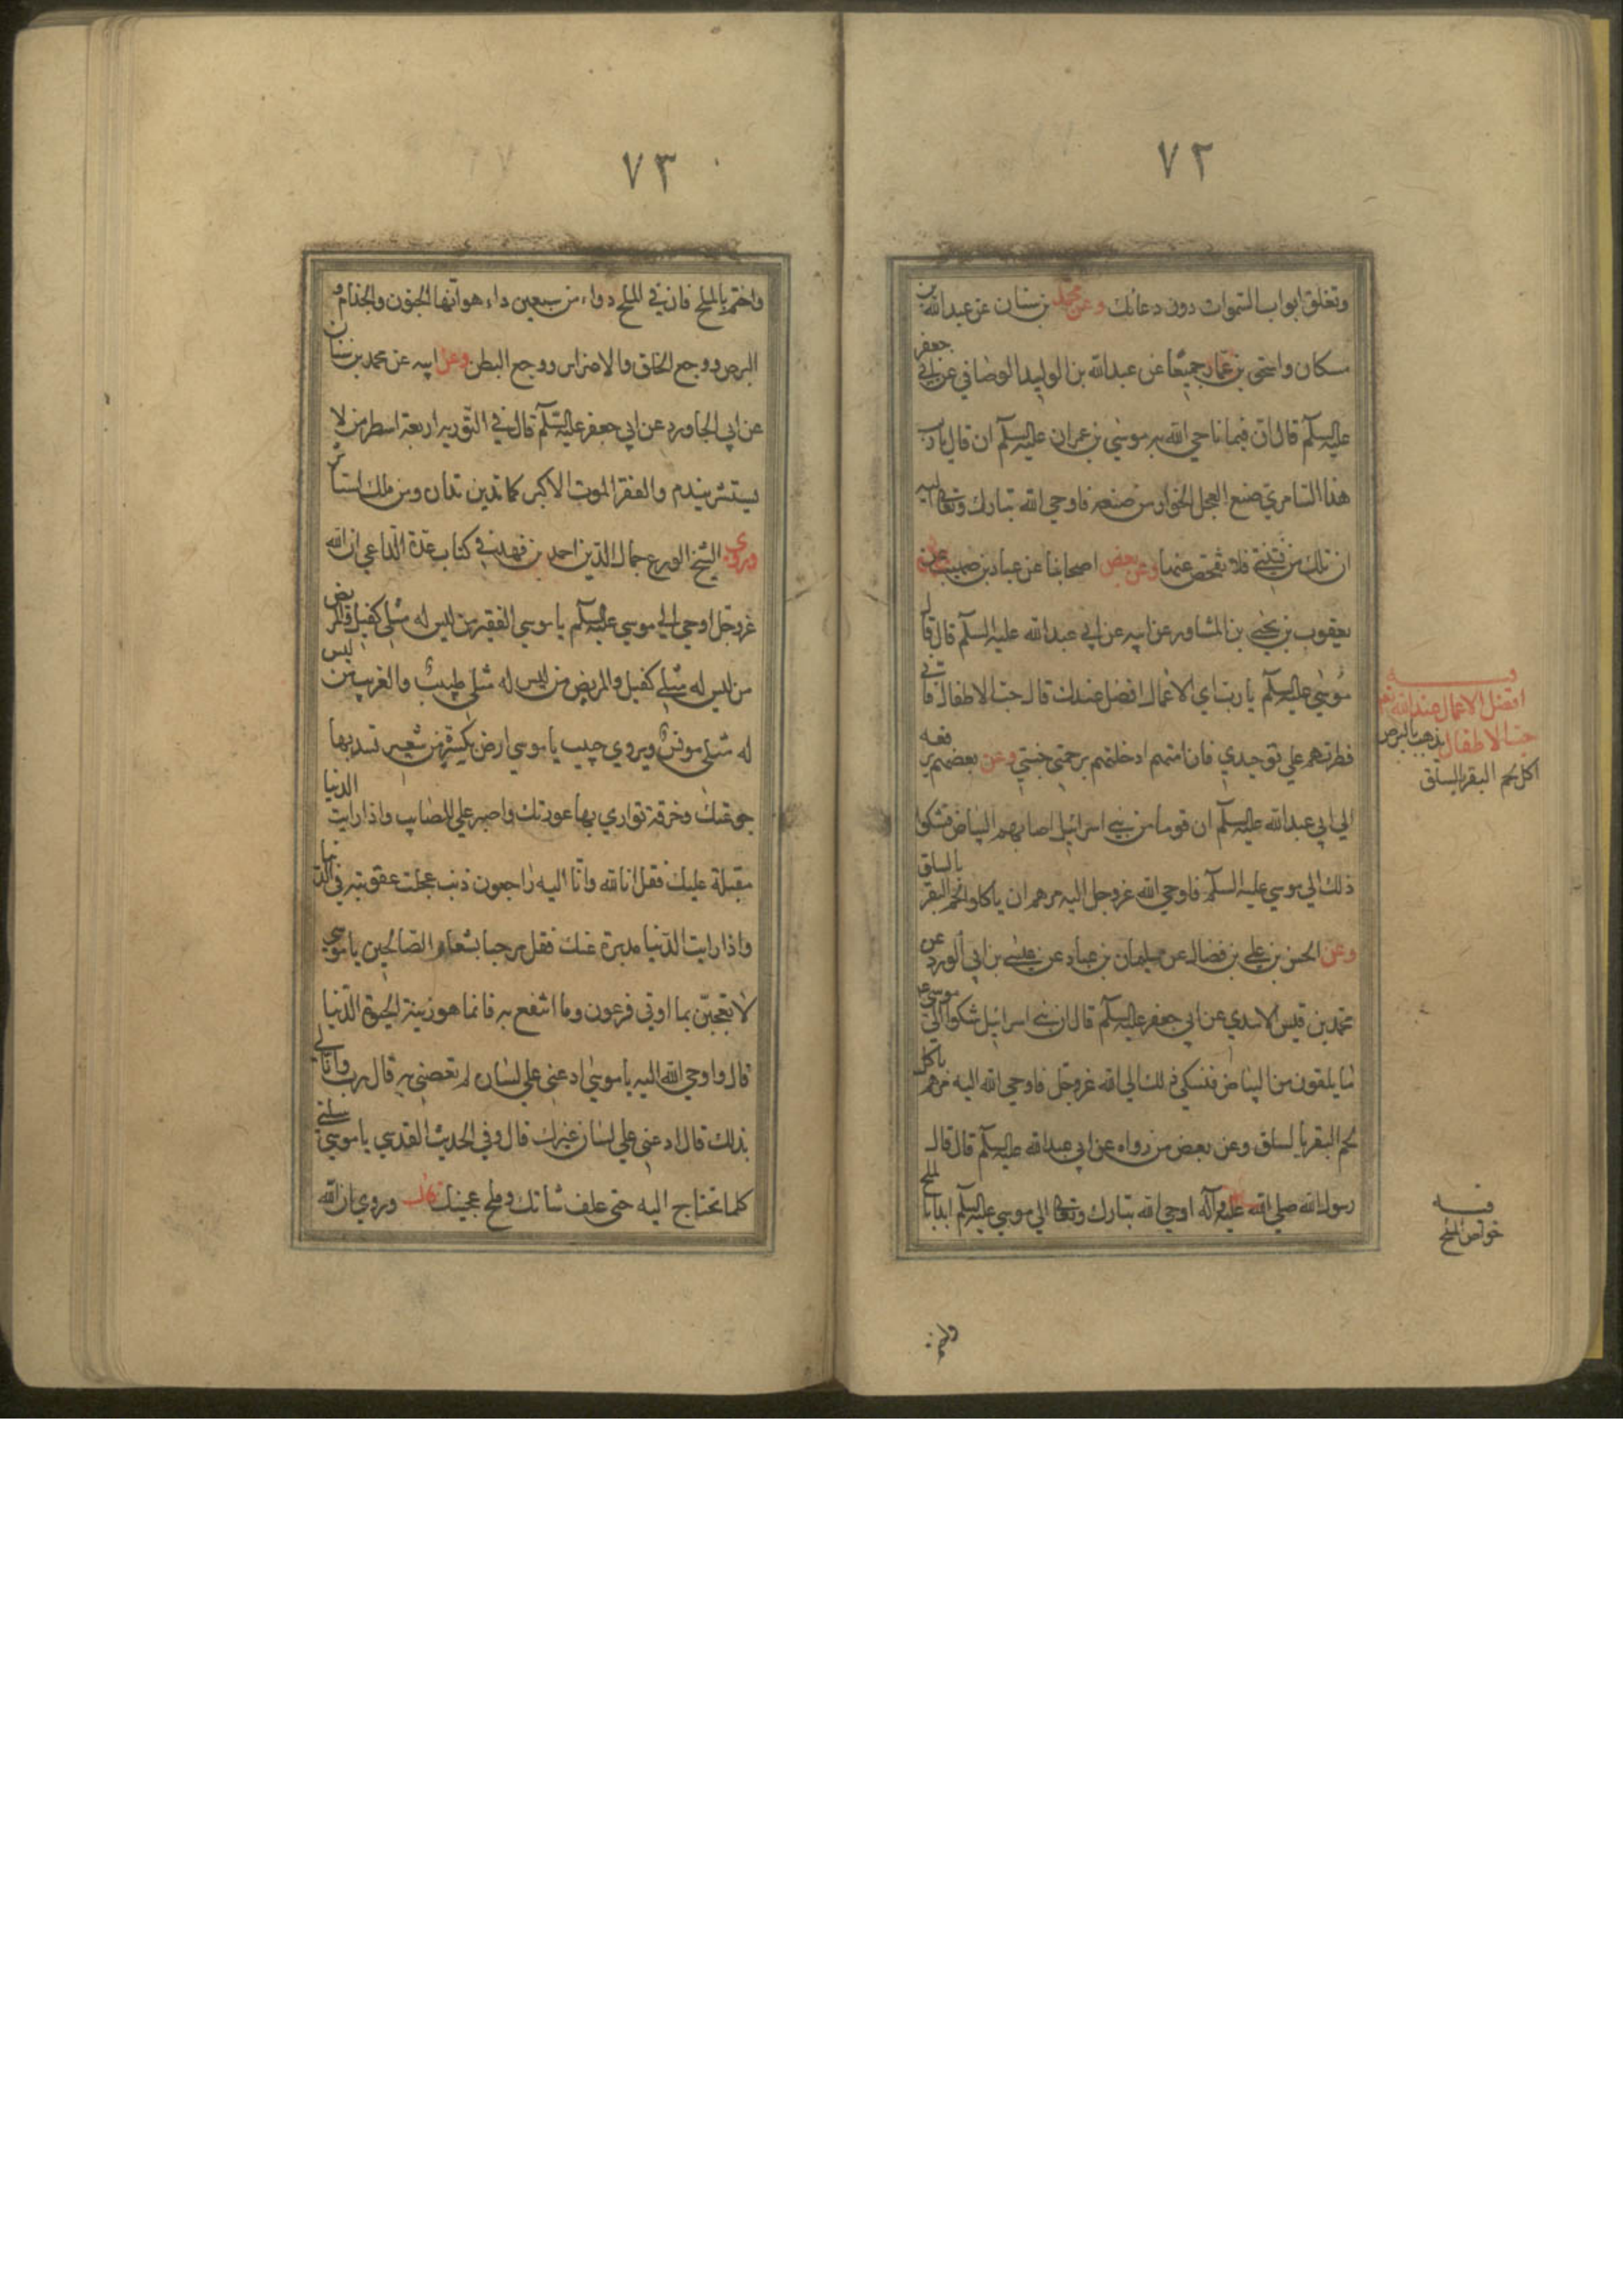 ٧٢
وتغلق ابواب السموات دون دعائك وعن محمد بن سنان عن عبدالله بن
مسكان واسحق بن عمار جميعا عن عبدالله بن الوليد الوصافي عن ابي جعفر
عليه السلم قال ان فيما ناجي الله به موسي بن عمران عليه السلم ان قال يا رب
هذا السامري صنع العجل الخوار من صنعه فاوحي الله تبارك وتعالي اليه
ان تلك من فتنتي فلا تفحص عنها وعن بعض اصحابنا عن عباد بن صهيب عن
يعقوب بن يحيي بن المشاور عن ابيه عن ابي عبدالله عليه السلم قال قال
موسي عليه السلم يا رب اي الاعمال افضل عندك قال حب الاطفال فاني
فطرتهم علي توحيدي فان امتهم ادخلتهم برحمتي جنتي وعن بعضهم يرفعه
الي ابي عبدالله عليه السلم ان قوما من بني اسرائيل اصابهم البياض فشكوا
ذلك الي موسي عليه السلم فاوحي الله عزوجل اليه مرهم ان ياكلوا لحم البقر بالسلق
وعن الحسن بن علي بن فضال عن سليمان بن عباد عن عيسي بن ابي الورد عن
محمد بن قيس الاسدي عن ابي جعفر عليه السلم قال ان بني اسرائيل شكوا الي موسي ع
ما يلقون من البياض فشكي ذلك الي الله عزوجل فاوحي الله اليه مرهم باكل
لحم البقر بالسلق وعن بعض من رواه عن ابي عبدالله عليه السلم قال قال
رسول الله صلي الله عليه وآله اوحي الله تبارك وتعالي الي موسي عليه السلم ابدا بالملح
افضل الاعمال عند الله تعم
حب الاطفال يذهب بالبرص
اكل لحم البقر بالسلق
فيه
خواص الملح
٧٣
واختم بالملح فان في الملح دواء من سبعين داء هو اتنها الجنون والجذام و
البرص ووجع الحلق والاضراس ووجع البطن وعن ابيه عن محمد بن سنان
عن ابي الجاورد عن ابي جعفر عليه السلم قال في التورية اربعة اسطر من لا
يستشر يندم والفقر الموت الاكبر كما تدين تدان ومن ملك استاثر
وروي الشيخ الورع جمال الدين احمد بن فهد في كتاب عدة الداعي ان الله
عزوجل اوحي الي موسي عليه السلم يا موسي الفقير من ليس له مثلي كفيل والمريض
من ليس له مثلي كفيل والمريض من ليس له مثلي طبيب والغريب من ليس
له مثلي مونس ويروي حبيب يا موسي ارض بكسرة من شعير تسد بها
جوعتك وخرقة تواري بها عورتك واصبر علي المصايب واذا رايت الدنيا
مقبلة عليك فقل انا لله وانا اليه راجعون ذنب عجلت عقوبته في الدنيا
واذا رايت الدنيا مدبرة عنك فقل مرحبا بشعار الصالحين يا موسي
لا تعجبن بما اوتي فرعون وما اتتفع به فانما هو زينة الحيوة الدنيا
قال واوحي الله اليه يا موسي ادعني علي لسان لم تعصني به قال رب واني لي
بذلك قال ادعني علي لسان غيرك قال وفي الحديث القدسي يا موسي سلني
كلما تحتاج اليه حتي علف شاتك وملح عجينك وروي ان الله